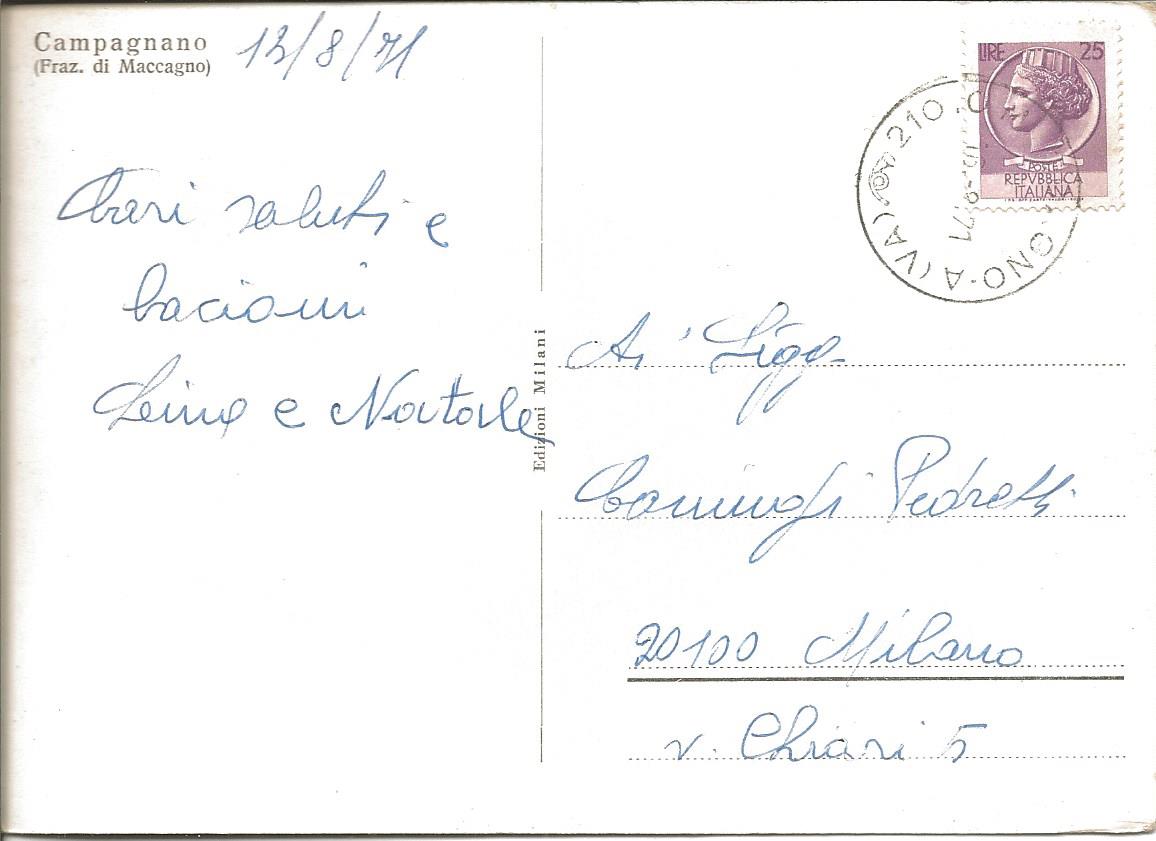 Campagnano
(Fraz. di Maccagno)
12/8/71
Cari saluti e
bacioni
Lina e Natale
Edizioni Milani
LIRE 25
POSTE
REPVBBLICA
ITALIANA
210
ONO-A (VA)
Ai Sigg
Pedretti
20100 Milano
v. Chiari 5